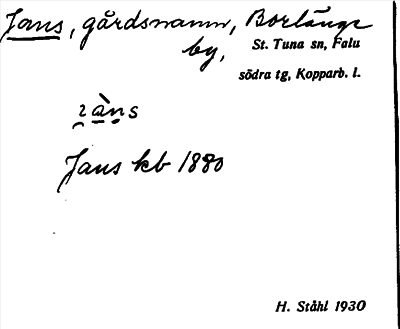 Jans, gårdsnamn, Borlänge
by, St. Tuna sn, Falu
södra tg, Kopparb. l.
Jans kb 1880
H. Ståhl 1930